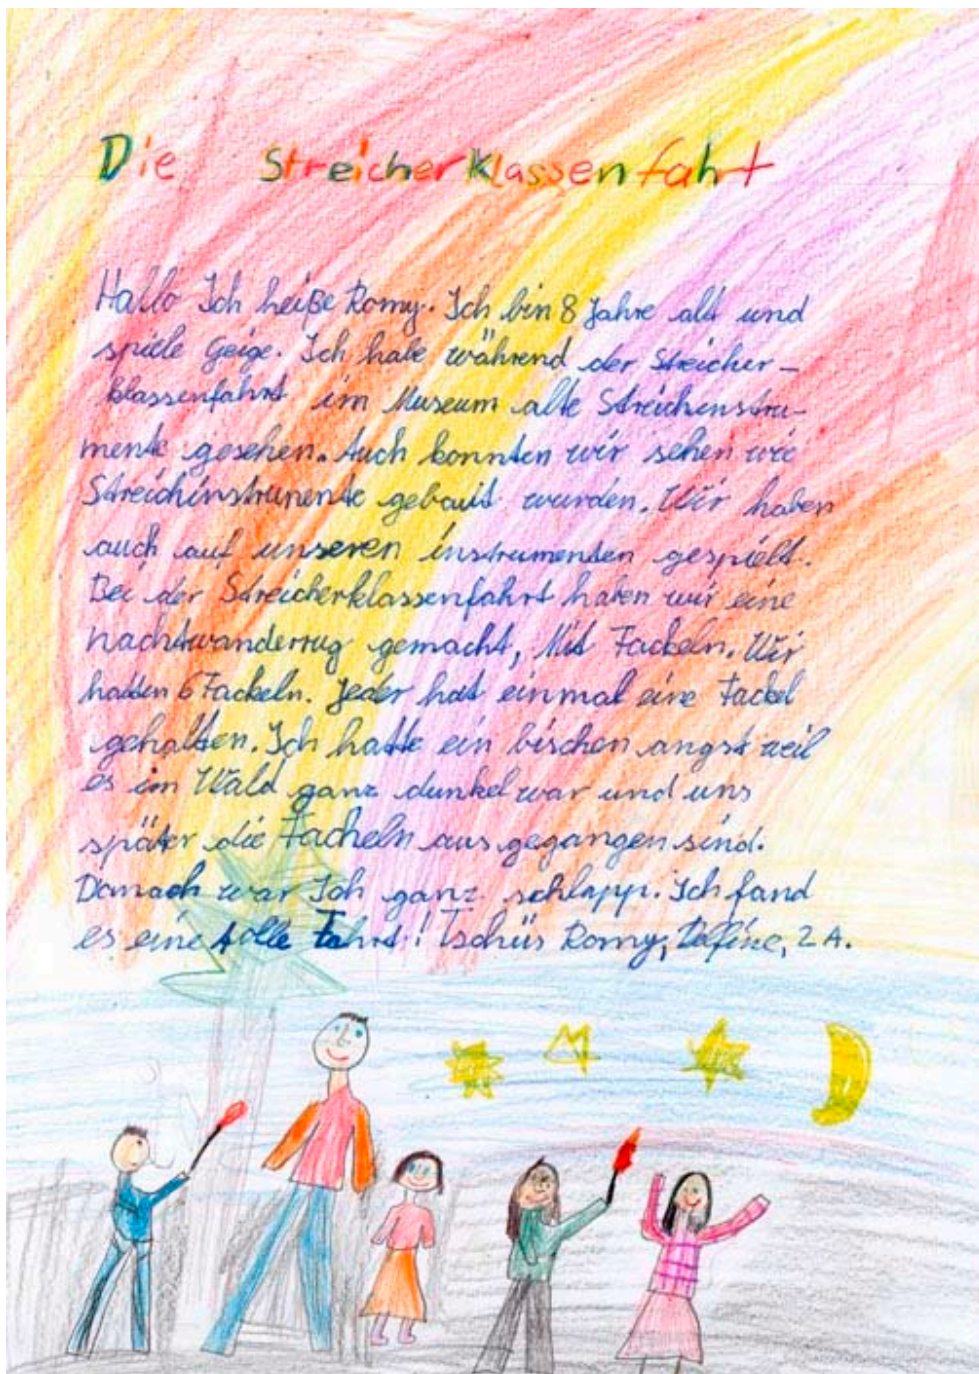 Die Streicherklassenfahrt
Hallo Ich heiße Romy. Ich bin 8 Jahre alt und
spiele Geige. Ich habe während der Streicher-
klassenfahrt im Museum alte Streichinstru-
mente gesehen. Auch konnten wir sehen wie
Streichinstrunente gebaut wurden. Wir haben
auch auf unseren instrumenten gespielt.
Bei der Streicherklassenfahrt haben wir eine
nachtwanderrug gemacht, Mit Fackeln. Wir
hatten 6 Fackeln. Jeder hat einmal eine Fackel
gehalten. Ich hatte ein bischen angst weil
es im Wald ganz dunkel war und uns
später die Fackeln aus gegangen sind.
Danach war Ich ganz schlapp. Ich fand
es eine tolle Fahrt! Tschüs Romy, 2A.